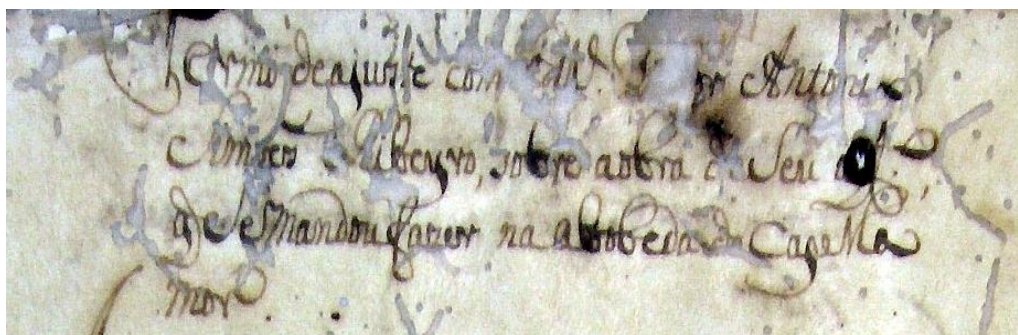 termo de ajuste com Antonio
Simões Ribeyro, sobre a obra de Seu
q Se Mandou fazer na abobeda da Capa Ma
mor